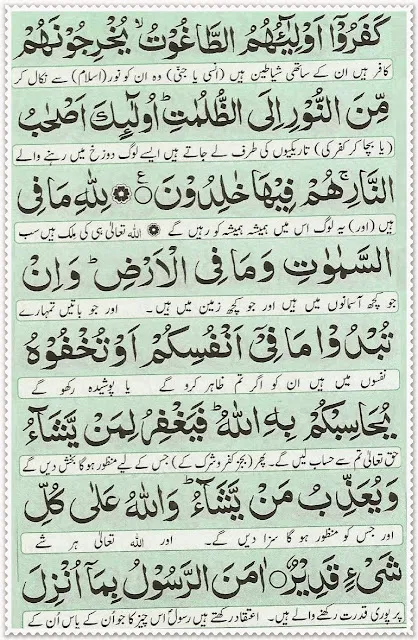 كَفَرُوْۤا اَوْلِيٰٓـــُٔهُمُ الطَّاغُوْتُ ۙ يُخْرِجُوْنَهُمْ
کافر ہیں ان کے ساتھی شیاطین ہیں (انسی یا جنّی) وہ ان کو نور (اسلام) سے نکال کر
مِّنَ النُّوْرِ اِلَى الظُّلُمٰتِ ؕ اُولٰٓئِكَ اَصْحٰبُ
(یا بچا کر کفر کی) تاریکیوں کی طرف لے جاتے ہیں ایسے لوگ دوزخ میں رہنے والے
النَّارِ ۚ هُمْ فِيْهَا خٰلِدُوْنَ ۞ لِلّٰهِ مَا فِى
ہیں (اور) یہ لوگ اس میں ہمیشہ ہمیشہ کو رہیں گے ۞ اللہ تعالیٰ ہی کی ملک ہیں سب
السَّمٰوٰتِ وَمَا فِى الْاَرْضِ ؕ وَاِنْ
جو کچھ آسمانوں میں ہیں اور جو کچھ زمین میں ہیں۔ اور جو باتیں تمہارے
تُبْدُوْا مَا فِىْۤ اَنْفُسِكُمْ اَوْ تُخْفُوْهُ
نفسوں میں ہیں ان کو اگر تم ظاہر کرو گے یا پوشیدہ رکھو گے
يُحَاسِبْكُمْ بِهِ اللّٰهُ ؕ فَيَغْفِرُ لِمَنْ يَّشَآءُ
حق تعالیٰ تم سے حساب لیں گے۔ پھر (بجز کفر و شرک کے) جس کے لیے منظور ہوگا بخش دیں گے
وَيُعَذِّبُ مَنْ يَّشَآءُ ؕ وَاللّٰهُ عَلٰى كُلِّ
اور جس کو منظور ہو گا سزا دیں گے۔ اور اللہ تعالیٰ ہر شے
شَىْءٍ قَدِيْرٌ ۝ اٰمَنَ الرَّسُوْلُ بِمَاۤ اُنْزِلَ
پر پوری قدرت رکھنے والے ہیں۔ اعتقاد رکھتے ہیں رسولؐ اس چیز کا جو اُن کے پاس اُن کے